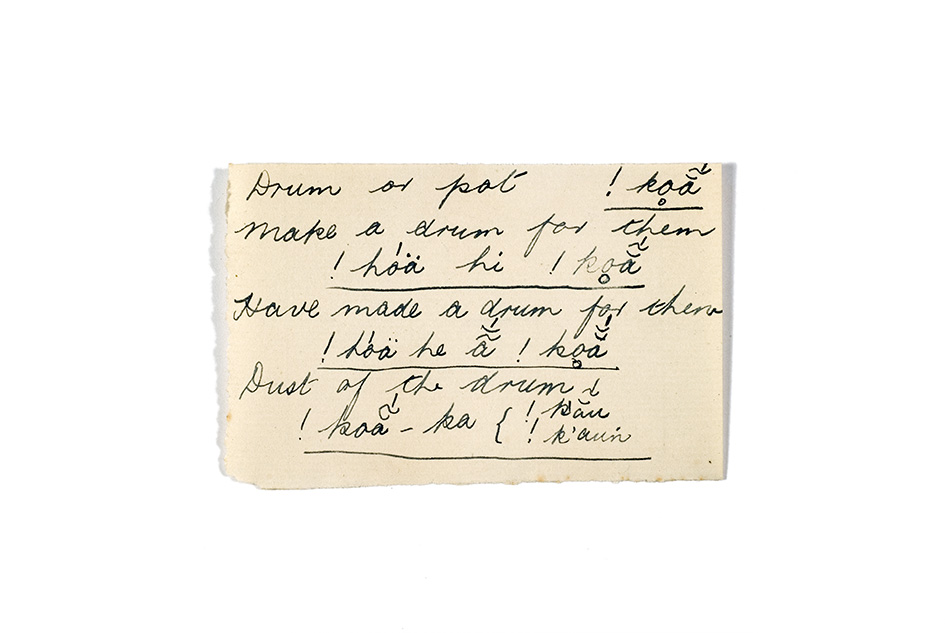 Drum or pot ! ko̥ä̃
Make a drum for them
! hóä hi ! ko̥ä̃
Have made a drum for them
! hóä he ã̆́ ! ko̥ä̃́
Dust of the drum
! koã̆́ - ka { ! k'ãu
! k'auń